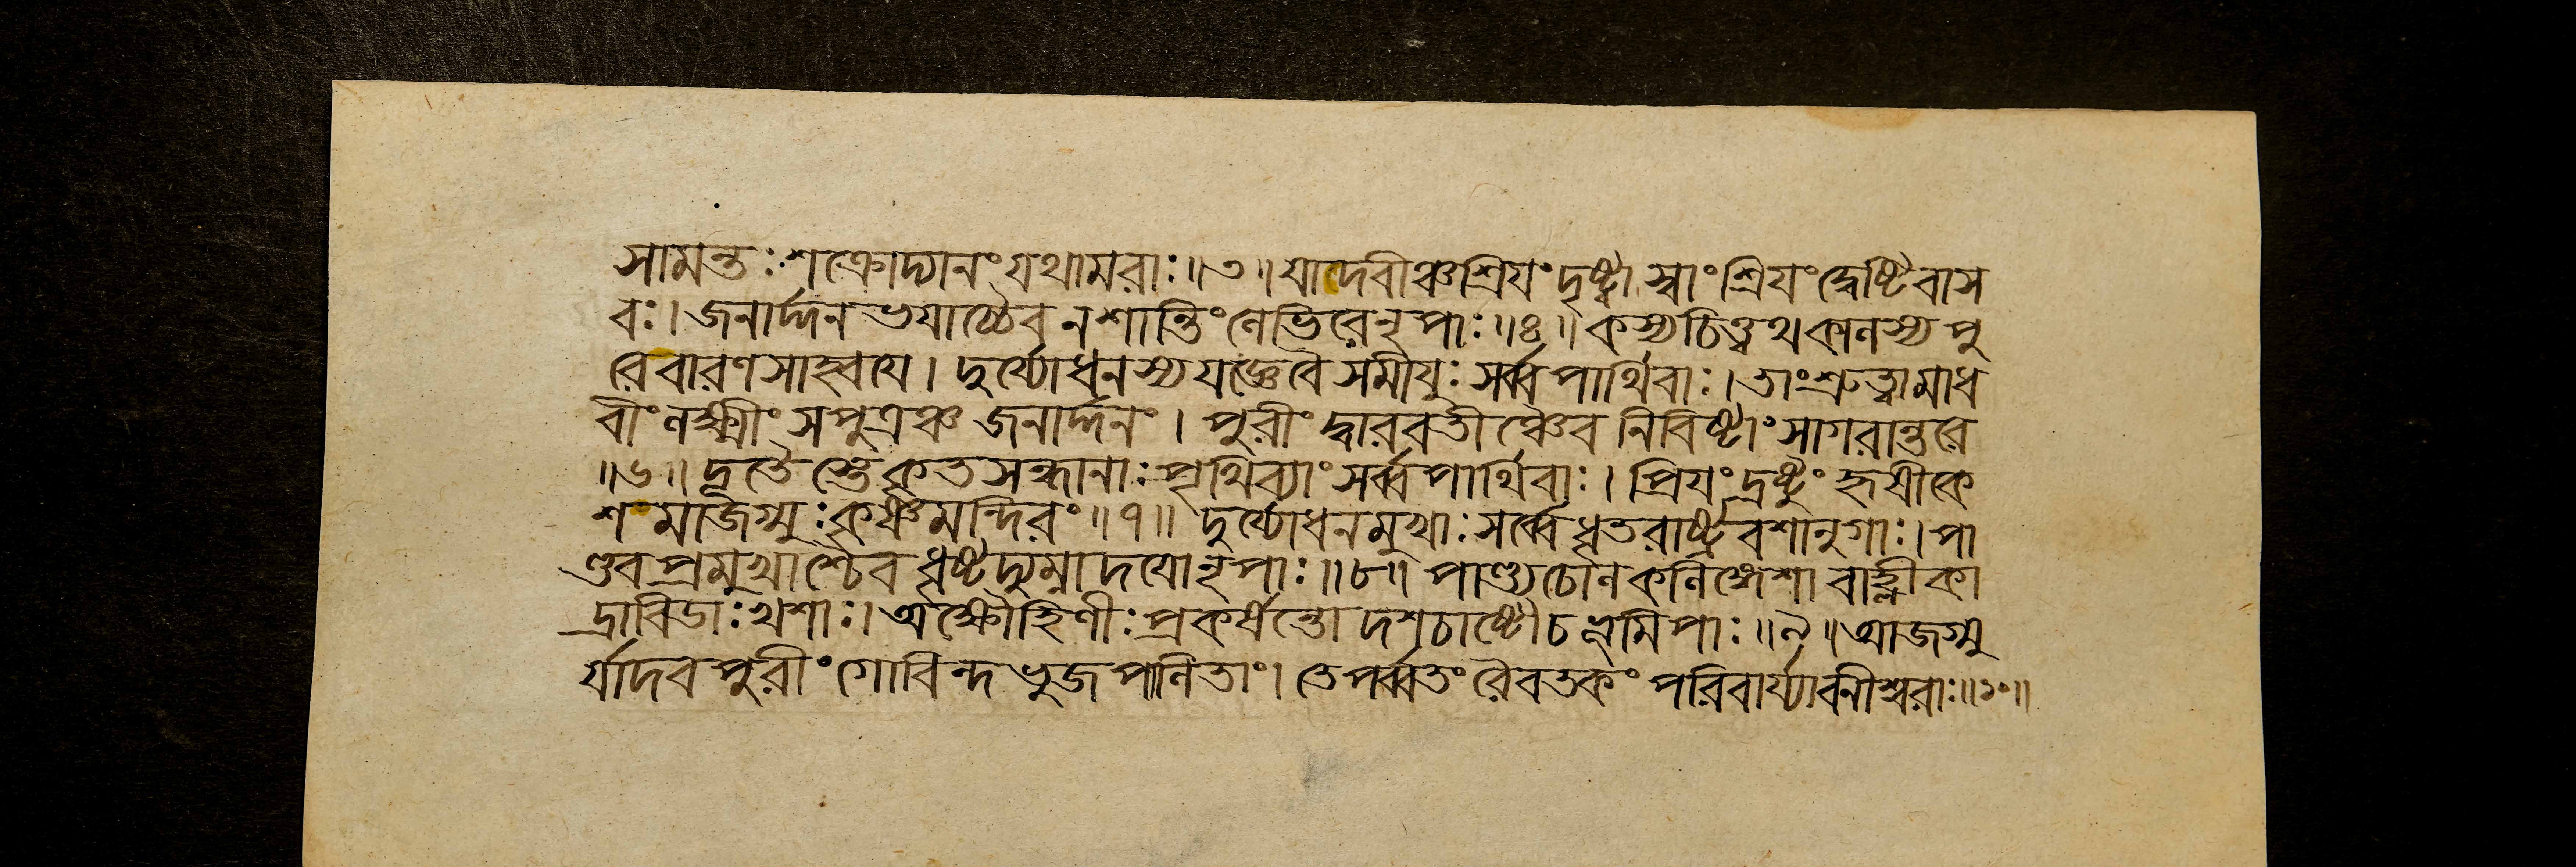 সামন্তঃ শক্রোদ্যানং যথামরাঃ॥৩॥ যাদেবীঞ্চশ্রিযং দৃষ্ট্বা স্বাং শ্রিযং দ্বেষ্টিবাস
বঃ। জনার্দ্দন ভযাচ্চৈব নশান্তিং লেভিরেনৃপাঃ॥৪॥ কস্যচিত্ত্বথকালস্য পু
রেবারণসাহ্বযে। দুর্য্যোধনস্য যজ্ঞেবৈ সমীযুঃ সর্ব্বপার্থিবাঃ। তাং শ্রুত্বামাধ
বীং লক্ষ্মীং সপুত্রঞ্চ জনার্দ্দনং। পুরীং দ্বারবতীঞ্চৈব নিবিষ্টাং সাগরান্তরে
॥৬॥ দূতৈ স্তৈঃকৃতসন্ধানাঃ পৃথিব্যাং সর্ব্বপার্থিবাঃ। প্রিযং দ্রষ্টুং হৃষীকে
শ মাজগ্মুঃ কৃষ্ণমন্দিরং॥৭॥ দুর্য্যোধনমুখাঃ সর্ব্বেধৃতরাষ্ট্রবশানুগাঃ। পা
ণ্ডবপ্রমুখাশ্চৈব ধৃষ্টদ্যুম্নাদযোনৃপাঃ॥৮॥ পাণ্ড্যচোলকলিঙ্গেশা বাহ্লীকা
দ্রাবিডাঃ খশাঃ। অক্ষৌহিণীঃ প্রকর্ষন্তো দশচাষ্টৌচ ভূমিপাঃ॥৯॥ আজগ্মু
র্যাদবপুরীং গোবিন্দভুজপালিতাং। তেপর্ব্বতং রৈবতকং পরিবার্য্যাবনীশ্বরাঃ॥১০॥